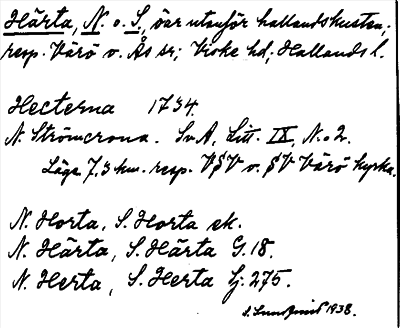 Härta, N. o. S., öar utanför hallandskusten,
resp. Värö o. Ås sn; Viske hd; Hallands l.
Hecterna 1734.
N. Strömcrona. Sv. A, Litt. IX, N. o 2.
Läge 7,3 km. resp. VSV o. SV Värö kyrka.
N. Horta, S. Horta ek.
N. Härta, S. Härta G. 18.
N. Herta, S. Herta Lj. 275.
1938.